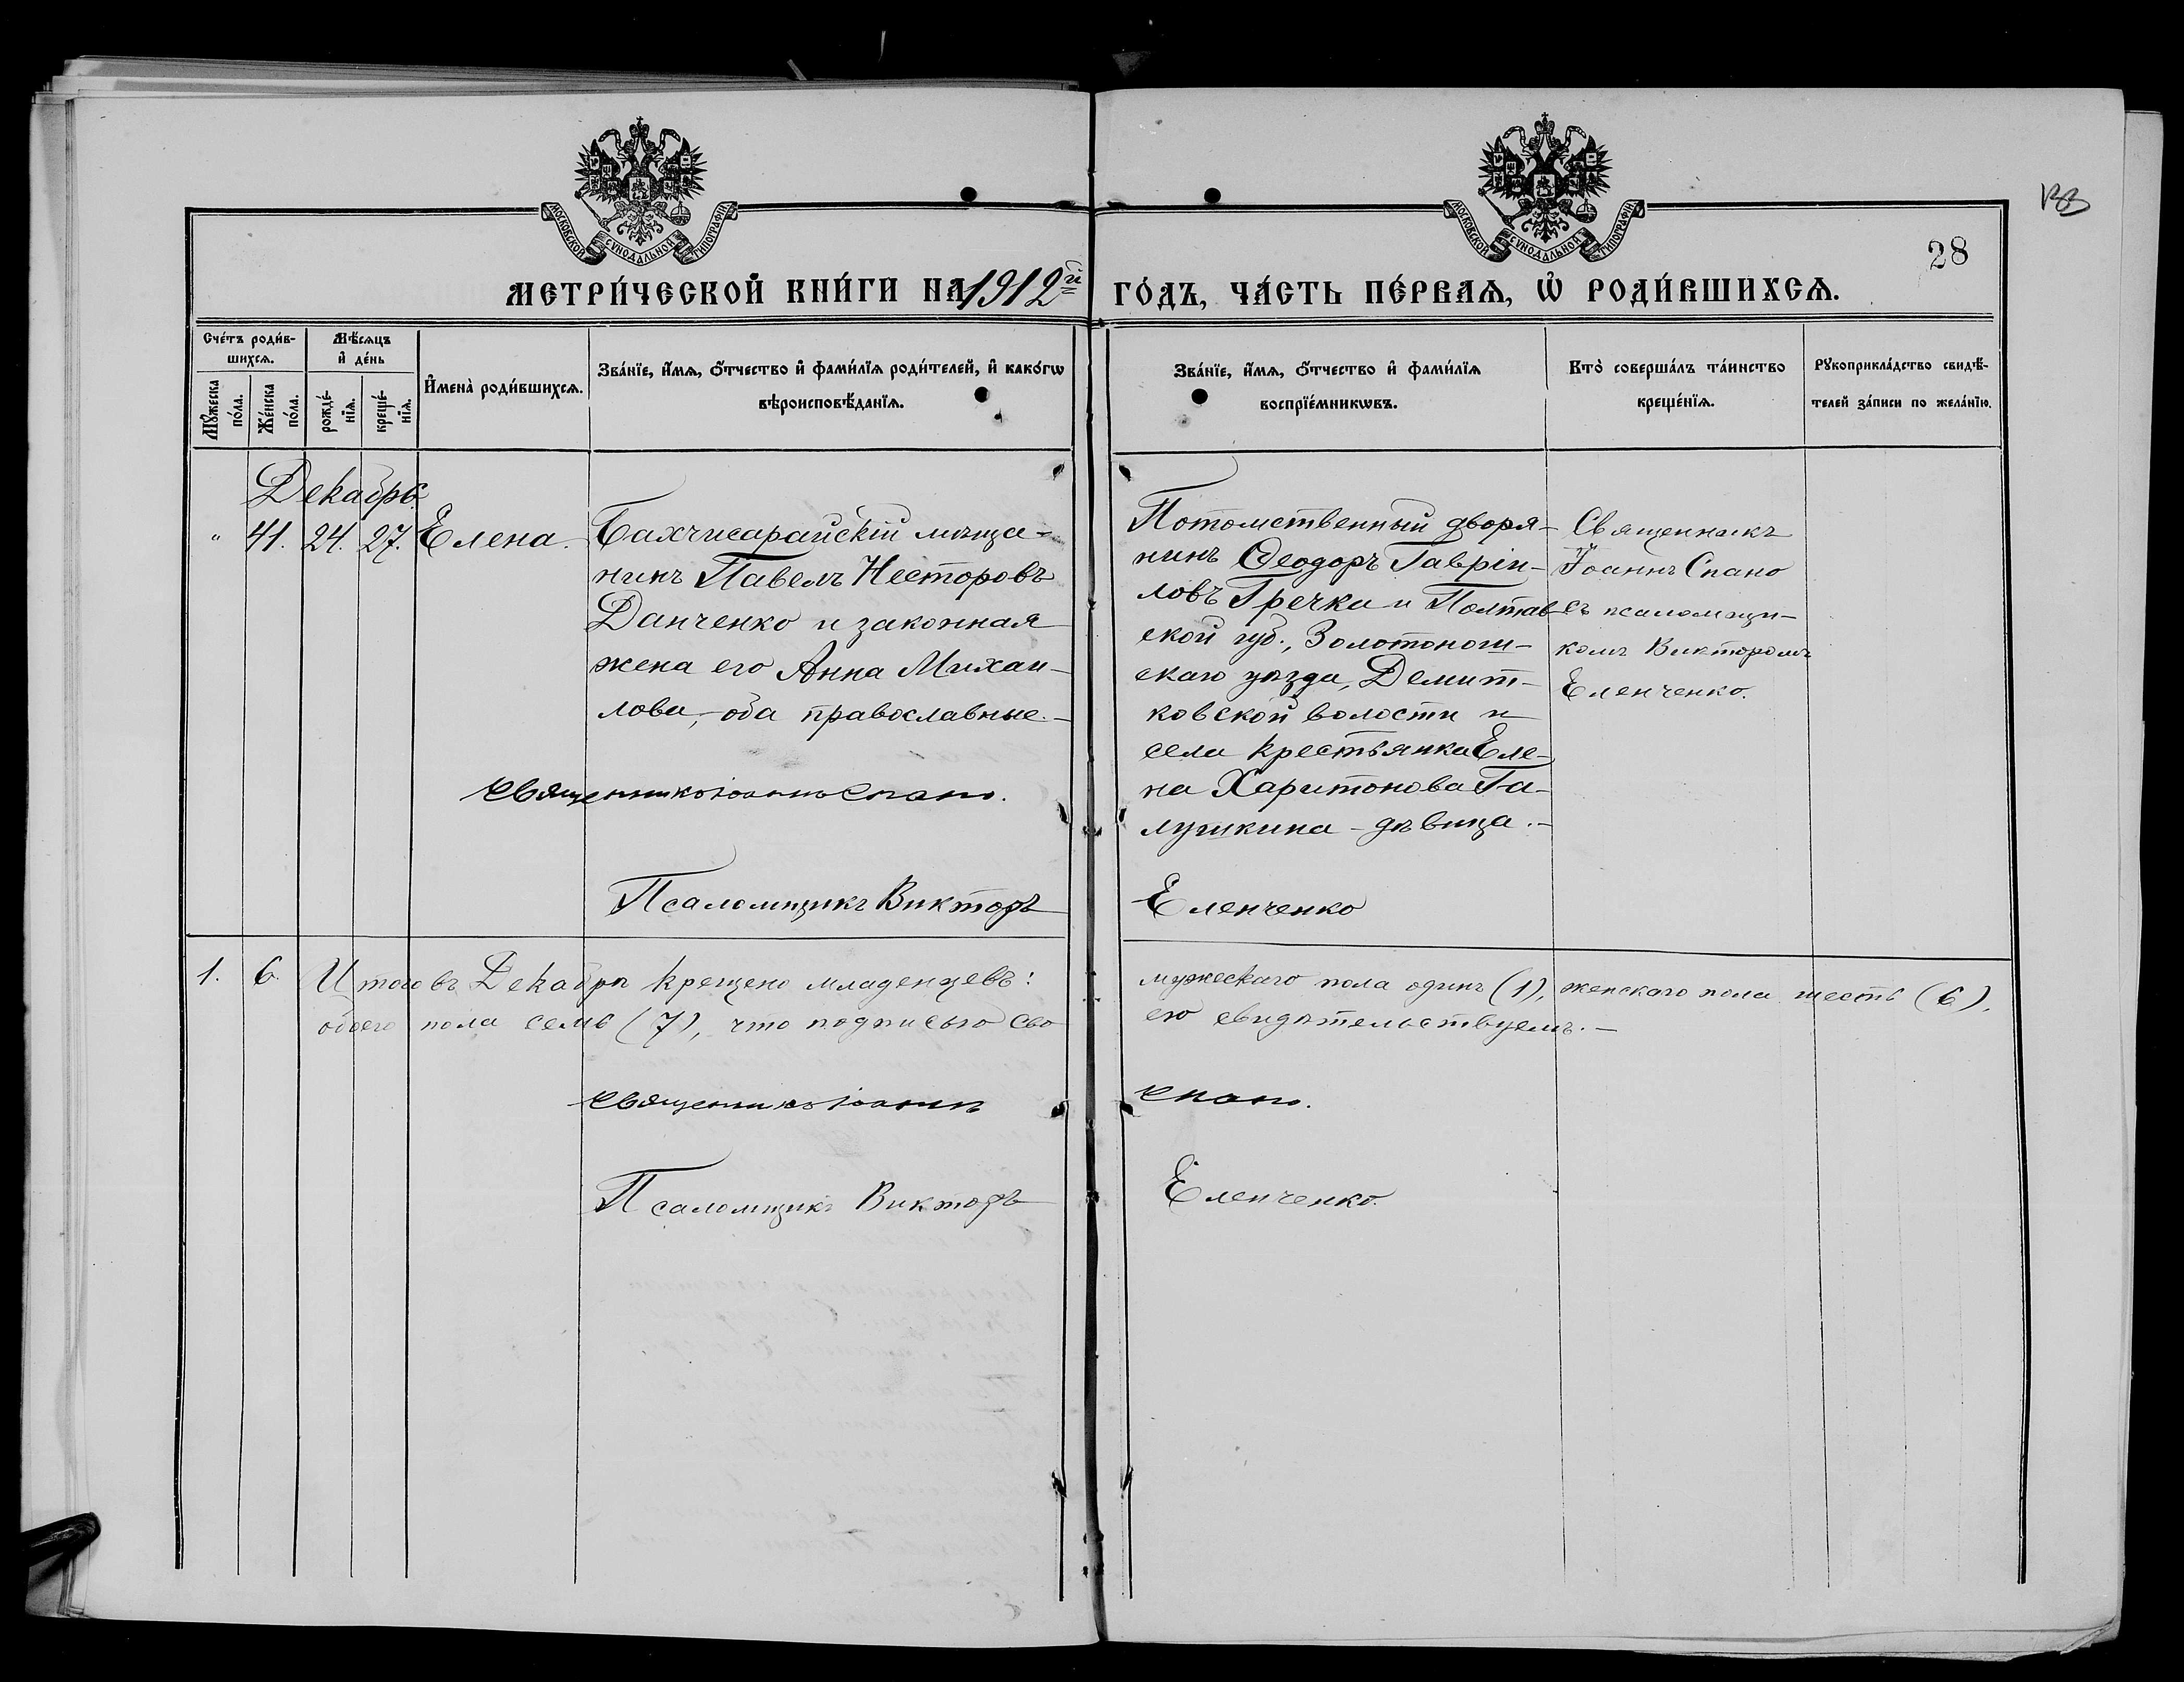 133
28
МОСКОВСКОЙ СѴНОДАЛЬНОЙ ТИПОГРАФІИ
МОСКОВСКОЙ СѴНОДАЛЬНОЙ ТИПОГРАФІИ
МЕТРИ́ЧЕСКОЙ КНИ́ГИ НА 1912й ГО́ДЪ, ЧА́СТЬ ПЕ́РВАѦ, Ѡ РОДИ́ВШИХСѦ.
Сче́тъ роди́в-
шихсѧ.
Мѣ́сѧцъ
и҆ де́нь
Мꙋ́жеска
по́ла.
Же́нска
по́ла.
рожде́-
нїѧ.
креще́-
нїѧ.
И҆мена̀ роди́вшихсѧ.
Зва́нїе, и҆́мѧ, ѻ҆́тчество и҆ фами́лїѧ роди́телей, и҆ како́гѡ
вѣроисповѣ́данїѧ.
Зва́нїе, и҆́мѧ, ѻ҆́тчество и҆ фами́лїѧ
воспрїе́мникѡвъ.
Кто̀ соверша́лъ та́инство
креще́нїѧ.
Рꙋкоприкла́дство свидѣ́-
телей за́писи по жела́нїю.
Декабрь.
" 41. 24. 27. Елена.
Бахчисарайскій мѣща-
нинъ Павелъ Несторовъ
Данченко и законная
жена его Анна Михаи-
лова, оба православные.-
Потомственный дворя-
нинъ Ѳеодоръ Гавріи-
ловъ Гречка и Полтав-
ской губ., Золотонош-
скаго уѣзда, Демит-
ковской волости и
села крестьянка Еле-
на Харитонова Га-
лушкина - дѣвица.-
Священникъ
Іоаннъ Спано
съ псаломщи-
комъ Викторомъ
Еленченко.
Священникъ Іоаннъ Спано.
Псаломщикъ Викторъ Еленченко
1. 6. Итого въ Декабрѣ крещено младенцевъ: мужескаго пола одинъ (1), женскаго пола шесть (6),
обоего пола семь (7), что подписью сво ею свидѣтельствуемъ.-
Священникъ Іоаннъ Спано.
Псаломщикъ Викторъ Еленченко.